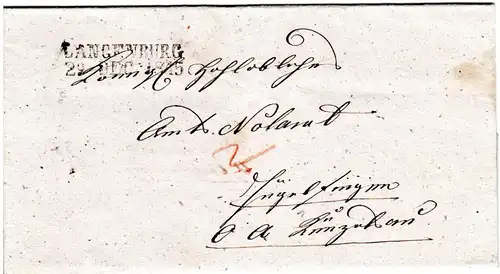 LANGENBURG
29 DEC 1845
Königl. Hochlöbliche
Amts Notariat
Ingelfingen
O A Künzelsau